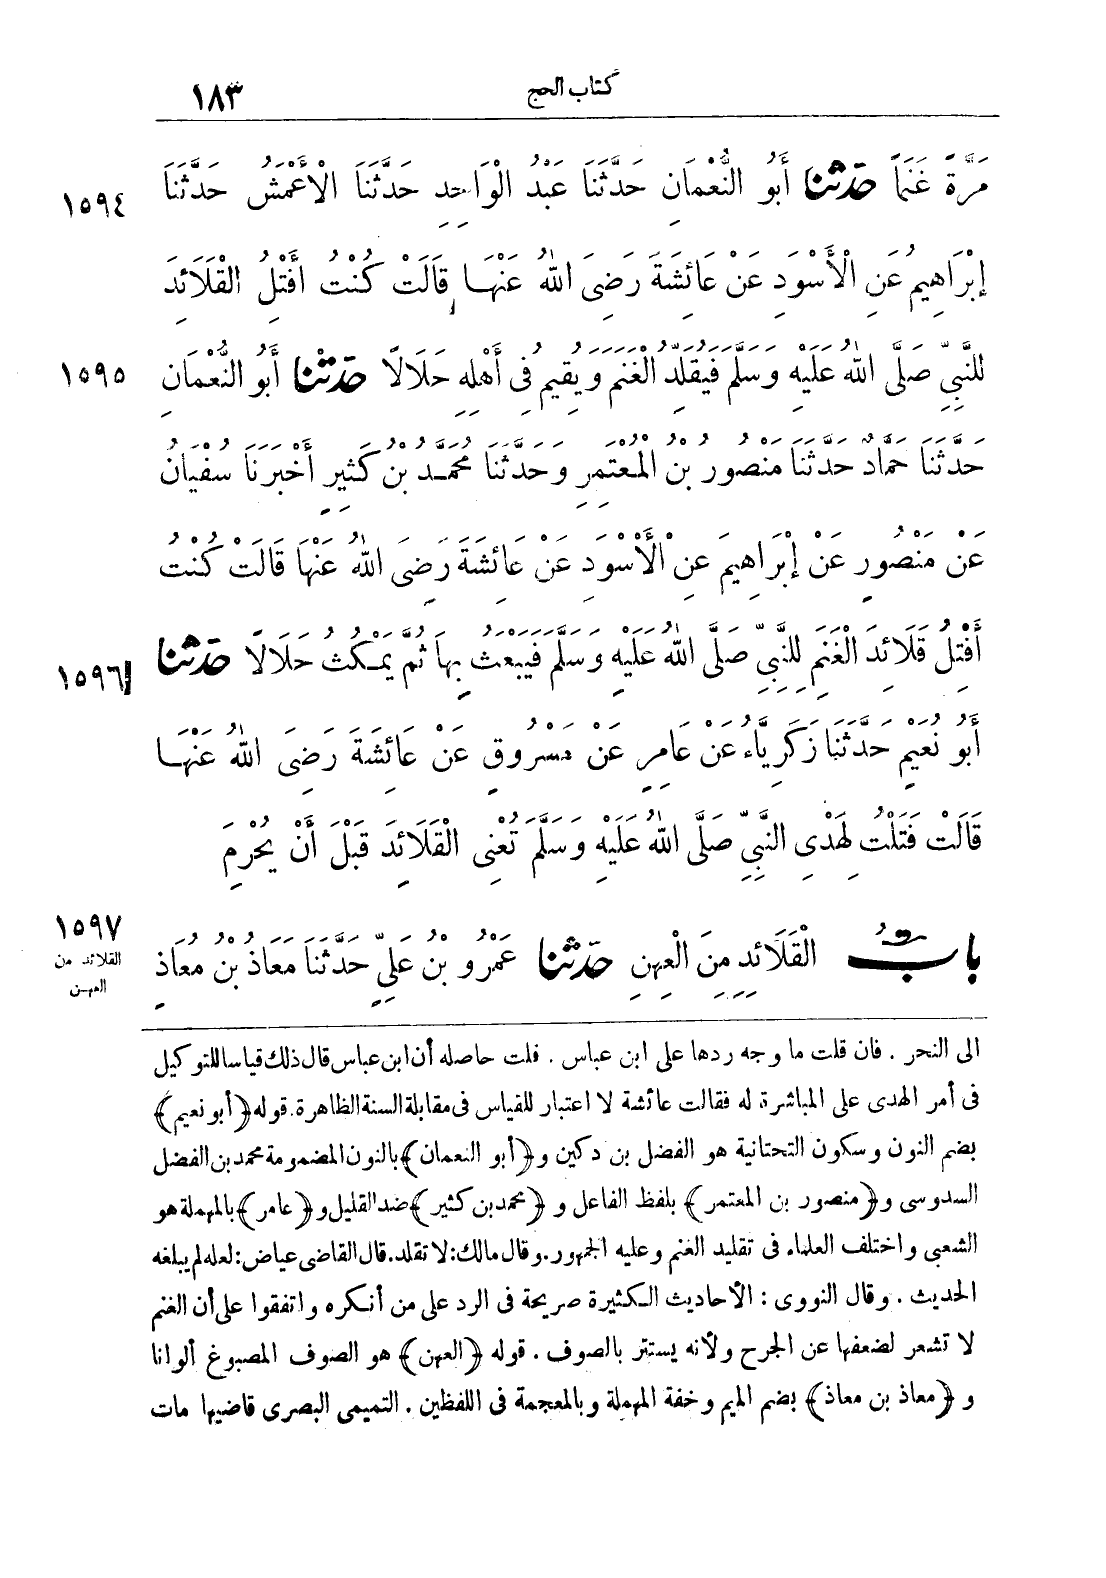 كتاب الحج
١٨٣
مَرَّةً غَنَمًا حَدَّثَنَا أَبُو النُّعْمَانِ حَدَّثَنَا عَبْدُ الْوَاحِدِ حَدَّثَنَا الْأَعْمَشُ حَدَّثَنَا
١٥٩٤
إِبْرَاهِيمُ عَنِ الْأَسْوَدِ عَنْ عَائِشَةَ رَضِىَ اللهُ عَنْهَا قَالَتْ كُنْتُ أَفْتِلُ الْقَلَائِدَ
لِلنَّبِىِّ صَلَّى اللهُ عَلَيْهِ وَسَلَّمَ فَيُقَلِّدُ الْغَنَمَ وَيُقِيمُ فِى أَهْلِهِ حَلَالًا حَدَّثَنَا أَبُو النُّعْمَانِ
١٥٩٥
حَدَّثَنَا حَمَّادٌ حَدَّثَنَا مَنْصُورُ بْنُ الْمُعْتَمِرِ وَحَدَّثَنَا مُحَمَّدُ بْنُ كَثِيرٍ أَخْبَرَنَا سُفْيَانُ
عَنْ مَنْصُورٍ عَنْ إِبْرَاهِيمَ عَنِ الْأَسْوَدِ عَنْ عَائِشَةَ رَضِىَ اللهُ عَنْهَا قَالَتْ كُنْتُ
أَفْتِلُ قَلَائِدَ الْغَنَمِ لِلنَّبِىِّ صَلَّى اللهُ عَلَيْهِ وَسَلَّمَ فَيَبْعَثُ بِهَا ثُمَّ يَمْكُثُ حَلَالًا حَدَّثَنَا
١٥٩٦
أَبُو نُعَيْمٍ حَدَّثَنَا زَكَرِيَّاءُ عَنْ عَامِرٍ عَنْ مَسْرُوقٍ عَنْ عَائِشَةَ رَضِىَ اللهُ عَنْهَا
قَالَتْ فَتَلْتُ لِهَدْىِ النَّبِىِّ صَلَّى اللهُ عَلَيْهِ وَسَلَّمَ تَعْنِى الْقَلَائِدَ قَبْلَ أَنْ يُحْرِمَ
بابُ الْقَلَائِدِ مِنَ الْعِهْنِ حَدَّثَنَا عَمْرُو بْنُ عَلِيٍّ حَدَّثَنَا مُعَاذُ بْنُ مُعَاذٍ
١٥٩٧
القلائد من
العهن
الى النحر . فان قلت ما وجه ردها على ابن عباس . قلت حاصله أن ابن عباس قال ذلك قياسا للتوكيل
فى أمر الهدى على المباشرة له فقالت عائشة لا اعتبار للقياس فى مقابلة السنة الظاهرة. قوله ﴿أبو نعيم﴾
بضم النون وسكون التحتانية هو الفضل بن دكين و﴿أبو النعمان﴾ بالنون المضمومة محمد بن الفضل
السدوسى و﴿منصور بن المعتمر﴾ بلفظ الفاعل و ﴿محمد بن كثير﴾ ضد القليل و﴿عامر﴾ بالمهملة هو
الشعبى واختلف العلماء فى تقليد الغنم وعليه الجمهور. وقال مالك: لا تقلد. قال القاضى عياض: لعله لم يبلغه
الحديث . وقال النووى : الأحاديث الكثيرة صريحة فى الرد على من أنكره واتفقوا على أن الغنم
لا تشعر لضعفها عن الجرح ولأنه يستتر بالصوف . قوله ﴿العهن﴾ هو الصوف المصبوغ ألوانا
و ﴿معاذ بن معاذ﴾ بضم الميم وخفة المهملة وبالمعجمة فى اللفظين . التميمى البصرى قاضيها مات